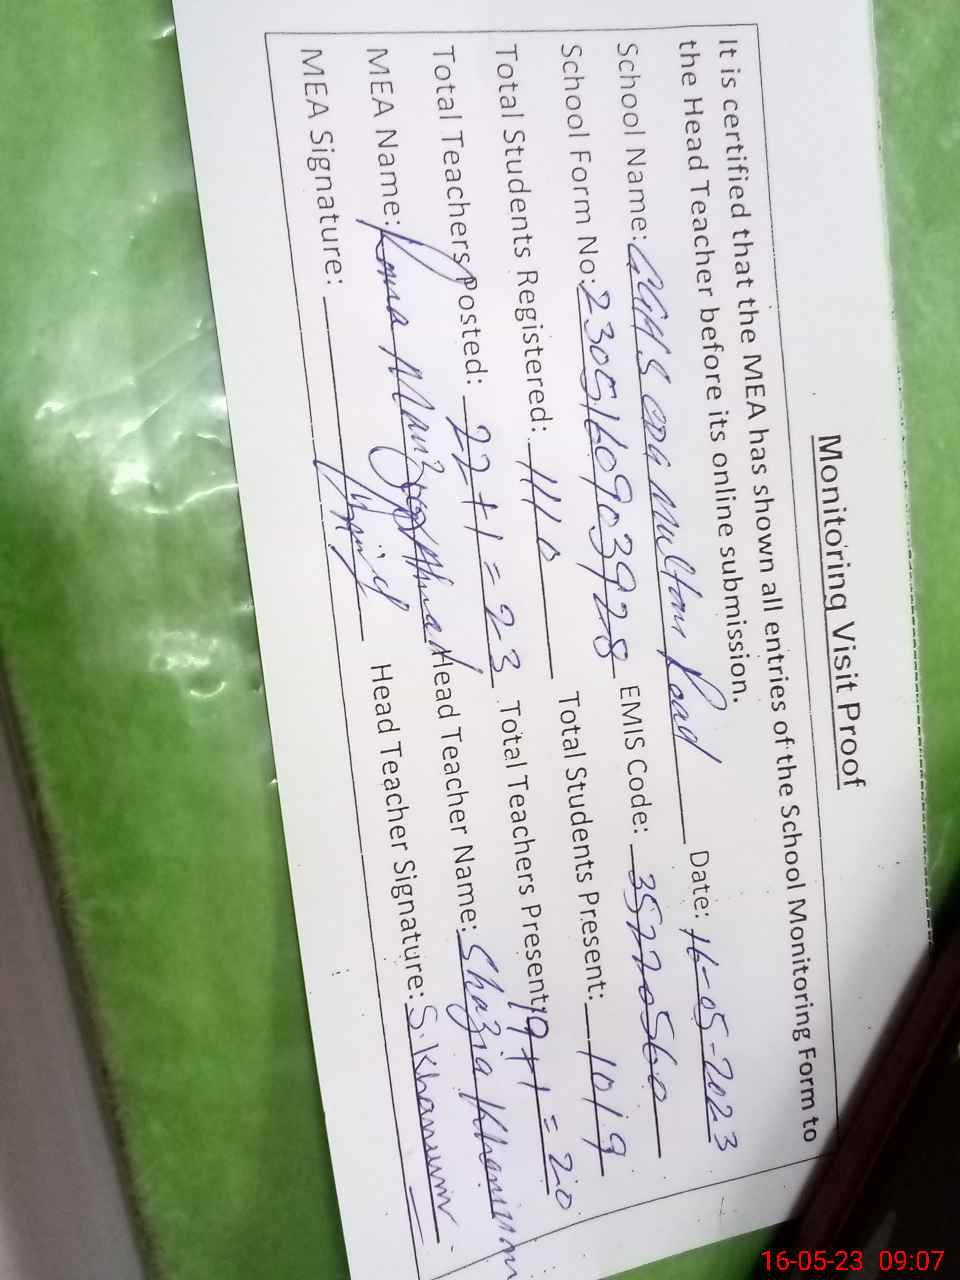 Monitoring Visit Proof
It is certified that the MEA has shown all entries of the School Monitoring Form to
the Head Teacher before its online submission.
School Name: GGHS coa multan Road Date: 16-05-2023
School Form No: 2305160903928 EMIS Code: 35220560
Total Students Registered: 1110 Total Students Present: 1019
Total Teachers Posted: 22+1=23 Total Teachers Present: 19+1=20
MEA Name: Rana Manzoor Ahmad Head Teacher Name: Shazia Khanum
MEA Signature: Head Teacher Signature: S. Khanum
16-05-23 09:07